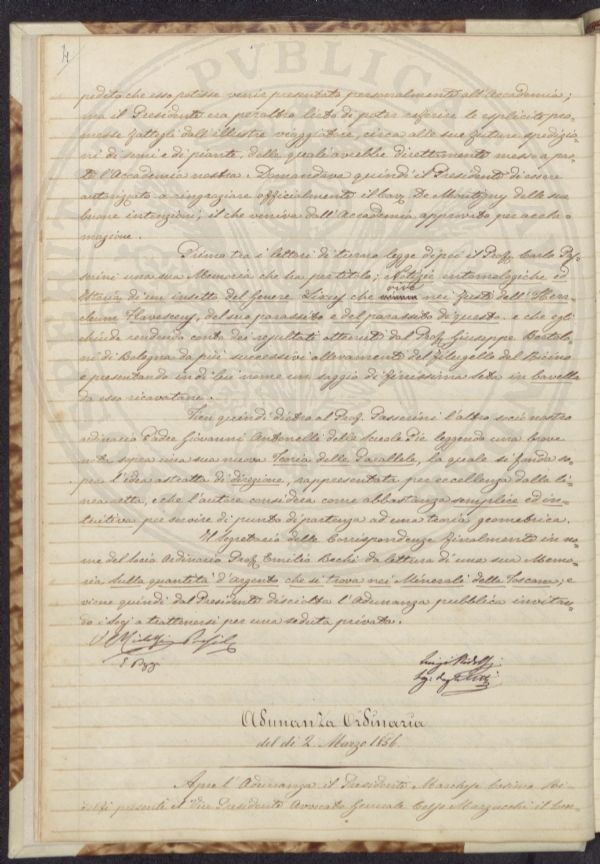 4
pedito che esso potesse venir presentato personalmente all'Accademia;
ma il Presidente era peraltro lieto di poter riferire le esplicite pro-
messe fattegli dall'illustre viaggiatore, circa alle sue future spedizio-
ni di semi e di piante, delle quali avrebbe direttamente messo a par-
te l'Accademia nostra. Domandava quindi il Presidente di essere
autorizzato a ringraziare officialmente il Cav. De Montigny delle sue
buone intenzioni; il che veniva dall'Accademia approvato per accla-
mazione.
Primo tra i lettori di turno legge dipoi il Prof. Carlo Pas-
serini una sua Memoria che ha per titolo; Notizie entomologiche ed
Istoria di un insetto del Genere Lixus che vive nei fusti dell'Hera-
cleum Flavescens, del suo parassito e del parassito di questo. e che egli
chiude rendendo conto dei resultati ottenuti dal Prof. Giuseppe Bertolo-
ni di Bologna da più successivi allevamenti del Filugello del Ricino
e presentando in di lui nome un saggio di finissima seta in bavella
da esso ricavatane.
Vien quindi dietro al Prof. Passerini l'altro socio nostro
ordinario Padre Giovanni Antonelli delle Scuole Pie leggendo una breve
nota sopra una sua nuova Teoria delle Parallele, la quale si fonda so-
pra l'idea astratta di direzione, rappresentata per eccellenza dalla li-
nea retta, e che l'autore considera come abbastanza semplice ed in-
tuitiva per servire di punto di partenza ad una teoria geometrica.
Il Segretario delle Corrispondenze finalmente in no-
me del Socio Ordinario Prof. Emilio Bechi da lettura di una sua Memo-
ria sulla quantità d'Argento che si trova nei Minerali della Toscana, e
viene quindi dal Presidente disciolta l'Adunanza pubblica invitan-
do i Socj a trattenersi per una seduta privata.
Luigi Ridolfi
Adunanza Ordinaria
del dì 2. Marzo 1856.
Apre l'Adunanza il Presidente Marchese Cosimo Ri-
dolfi presenti il Vice Presidente Avvocato Generale Celso Marzucchi il